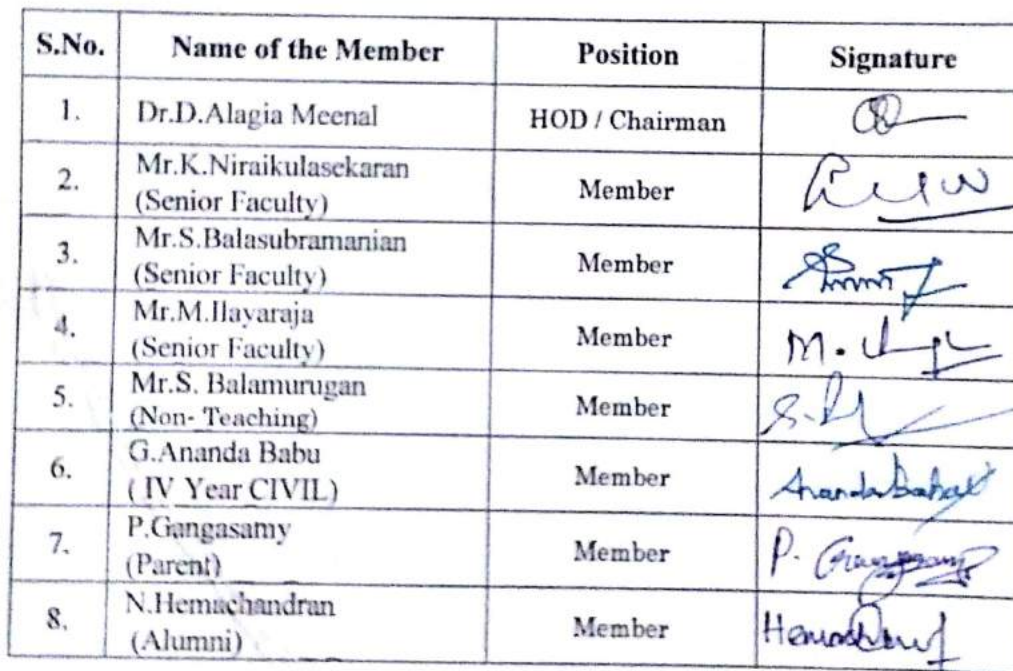 S.No. Name of the Member Position Signature
1. Dr.D.Alagia Meenal HOD / Chairman
2. Mr.K.Niraikulasekaran
(Senior Faculty) Member
3. Mr.S.Balasubramanian
(Senior Faculty) Member
4. Mr.M.Ilayaraja
(Senior Faculty) Member M.
5. Mr.S. Balamurugan
(Non- Teaching) Member
6. G.Ananda Babu
( IV Year CIVIL) Member
7. P.Gangasamy
(Parent) Member P.
8. N.Hemachandran
(Alumni) Member